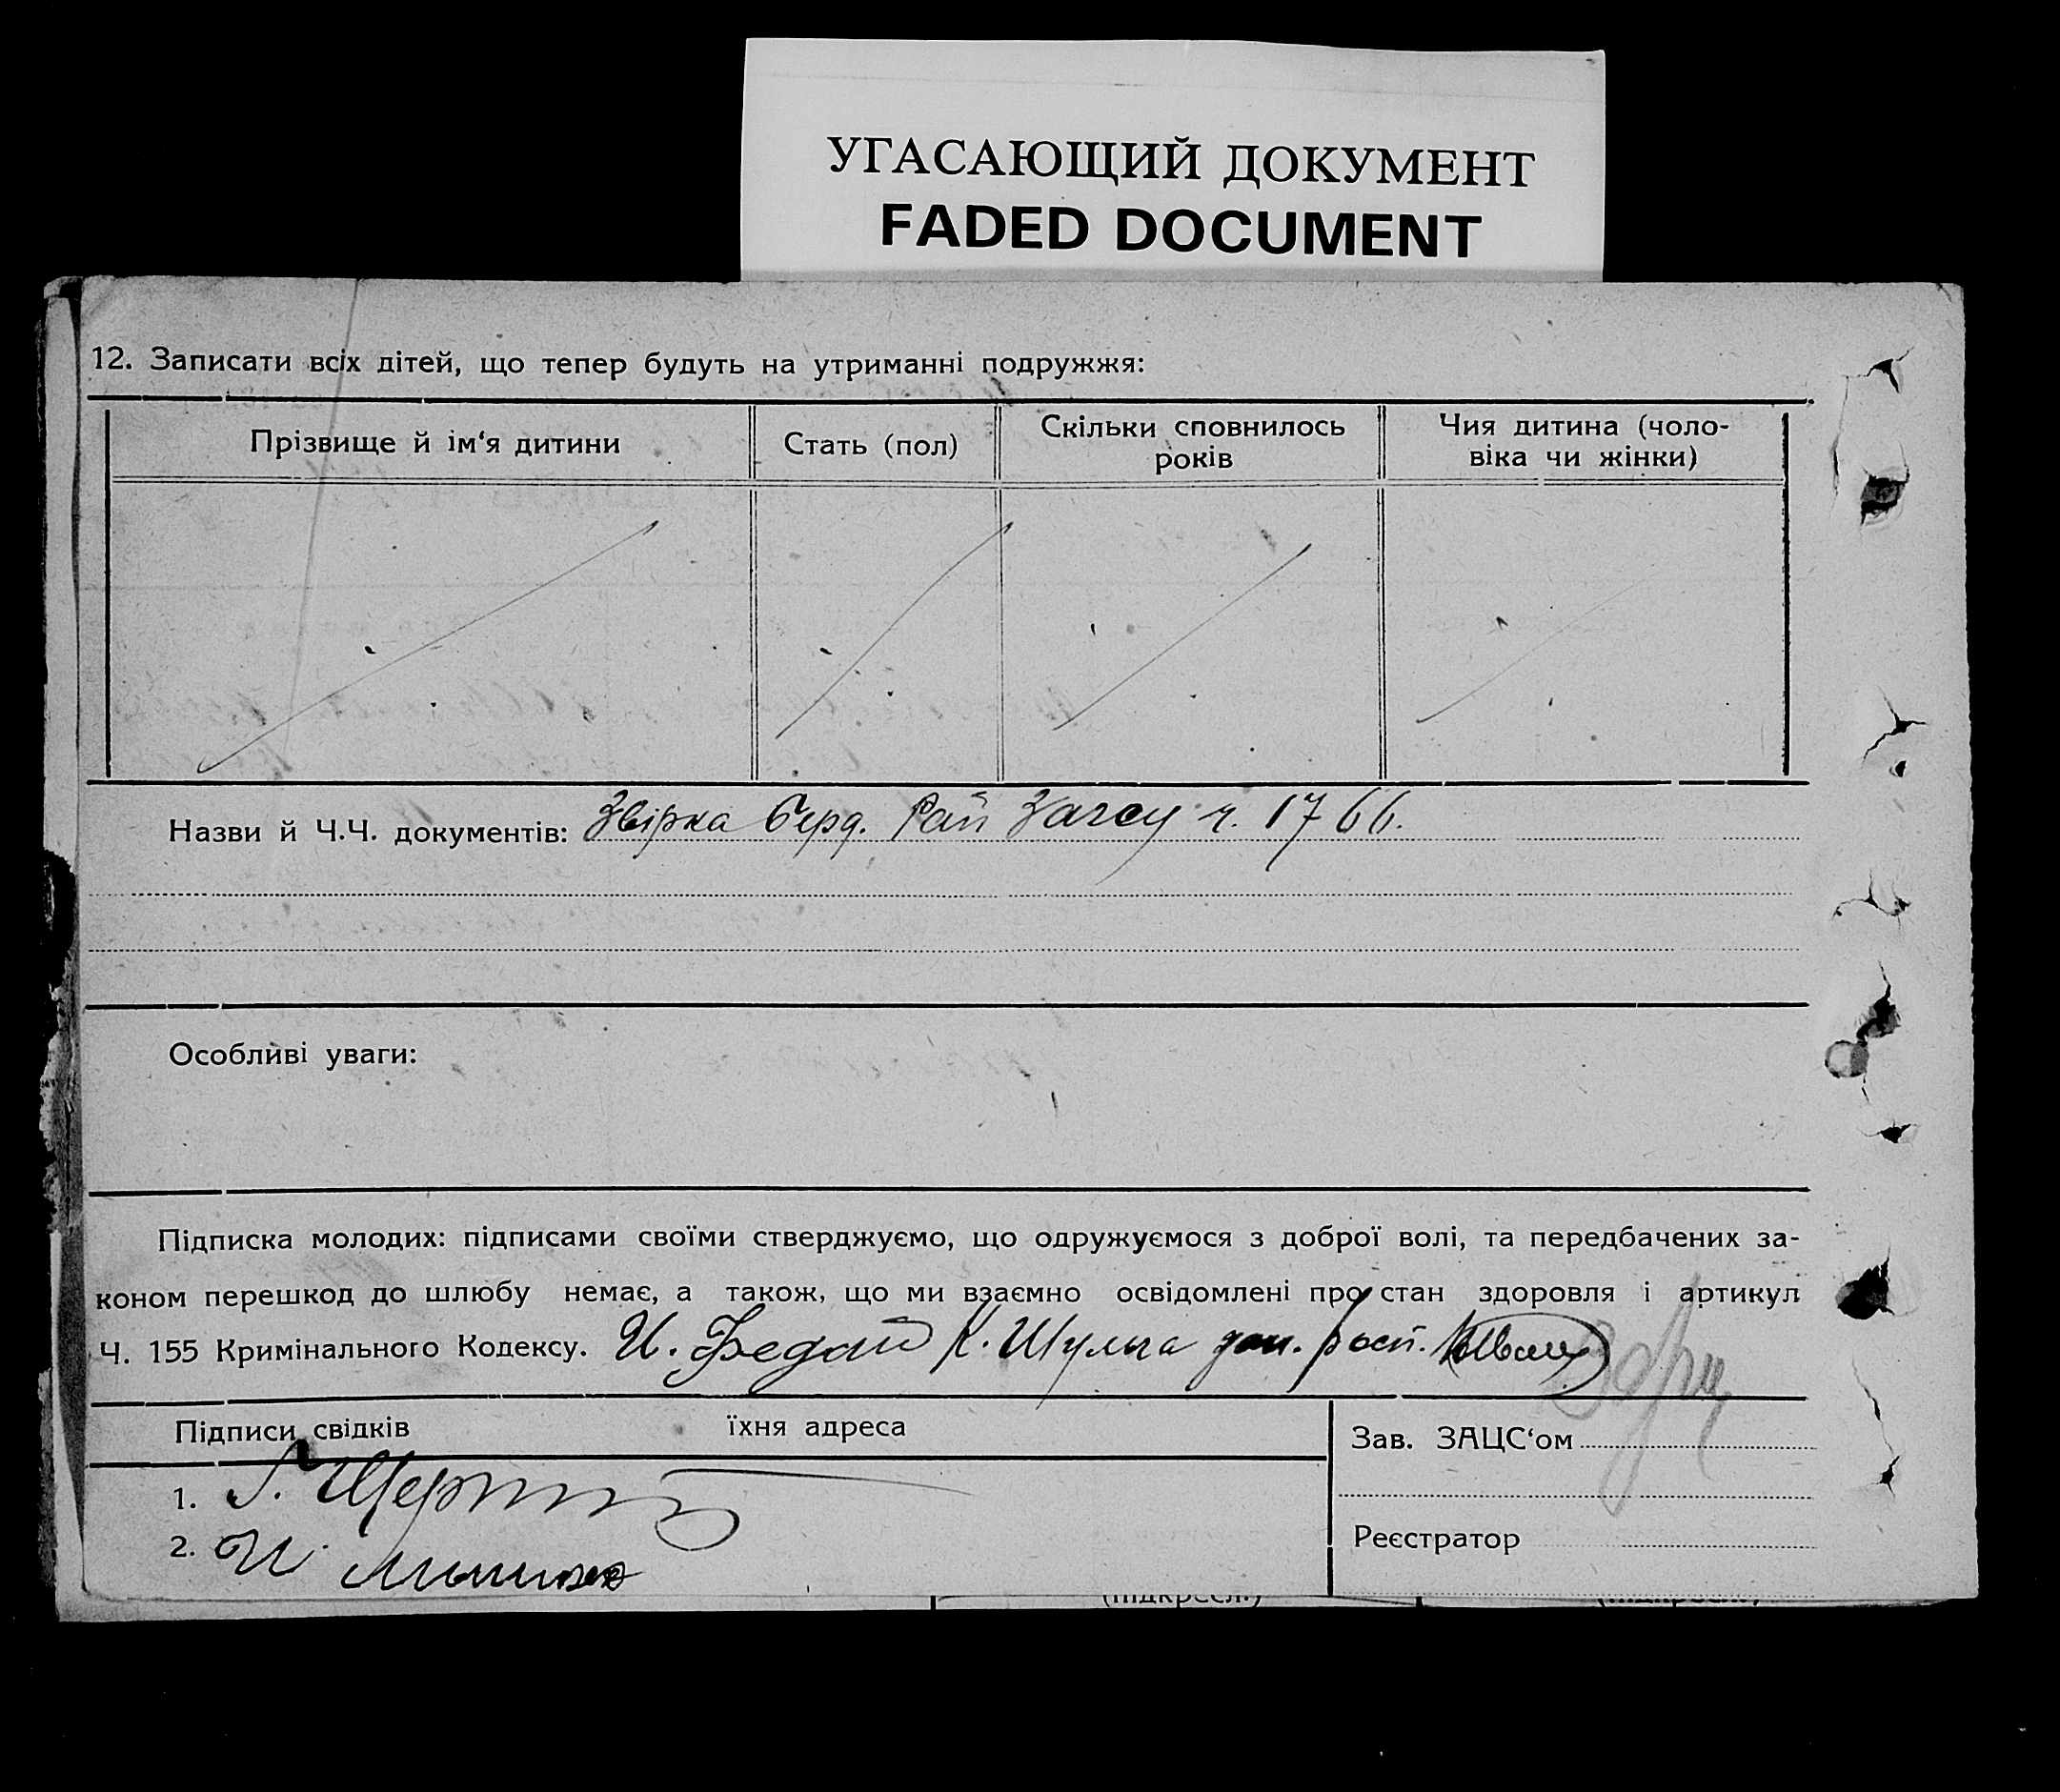 УГАСАЮЩИЙ ДОКУМЕНТ
FADED DOCUMENT
12. Записати всіх дітей, що тепер будуть на утриманні подружжя:
Прізвище й ім‘я дитини
Стать (пол)
Скільки сповнилось
років
Чия дитина (чоло-
віка чи жінки)
Назви й Ч.Ч. документів: Звірка Берд. Рай Загсу ч. 1766.
Особливі уваги:
Підписка молодих: підписами своїми стверджуємо, що одружуємося з доброї волі, та передбачених за-
коном перешкод до шлюбу немає, а також, що ми взаємно освідомлені про стан здоровля і артикул
Ч. 155 Кримінального Кодексу. И. Федай К. Шульга
Підписи свідків
їхня адреса
1.
2. И.
Зав. ЗАЦС‘ом
Реєстратор
(підкресл.)